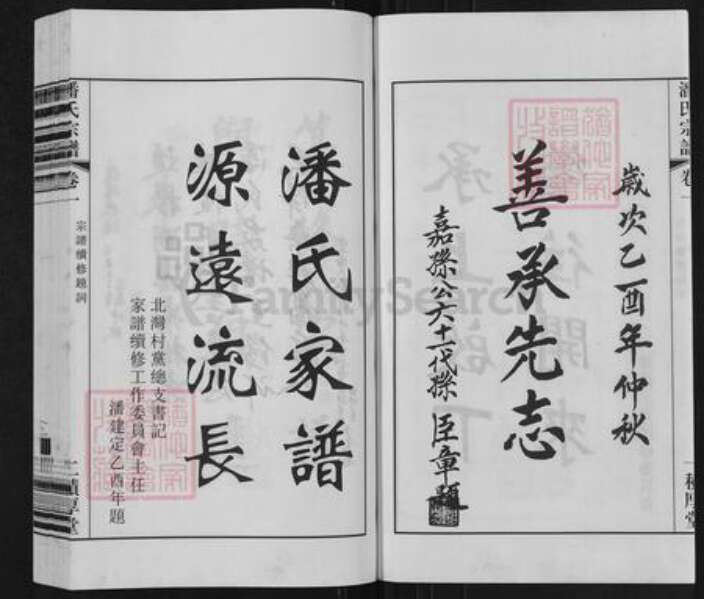 潘氏宗譜 卷一
歲次乙酉年仲秋
善承先志
嘉孫公六十一代孫 臣章題
潘氏家譜
源遠流長
北灣村黨總支書記
家譜續修工作委員會主任
潘建定乙酉年題
潘氏宗譜 卷一
宗譜續修題詞
二 積厚堂
FamilySearch